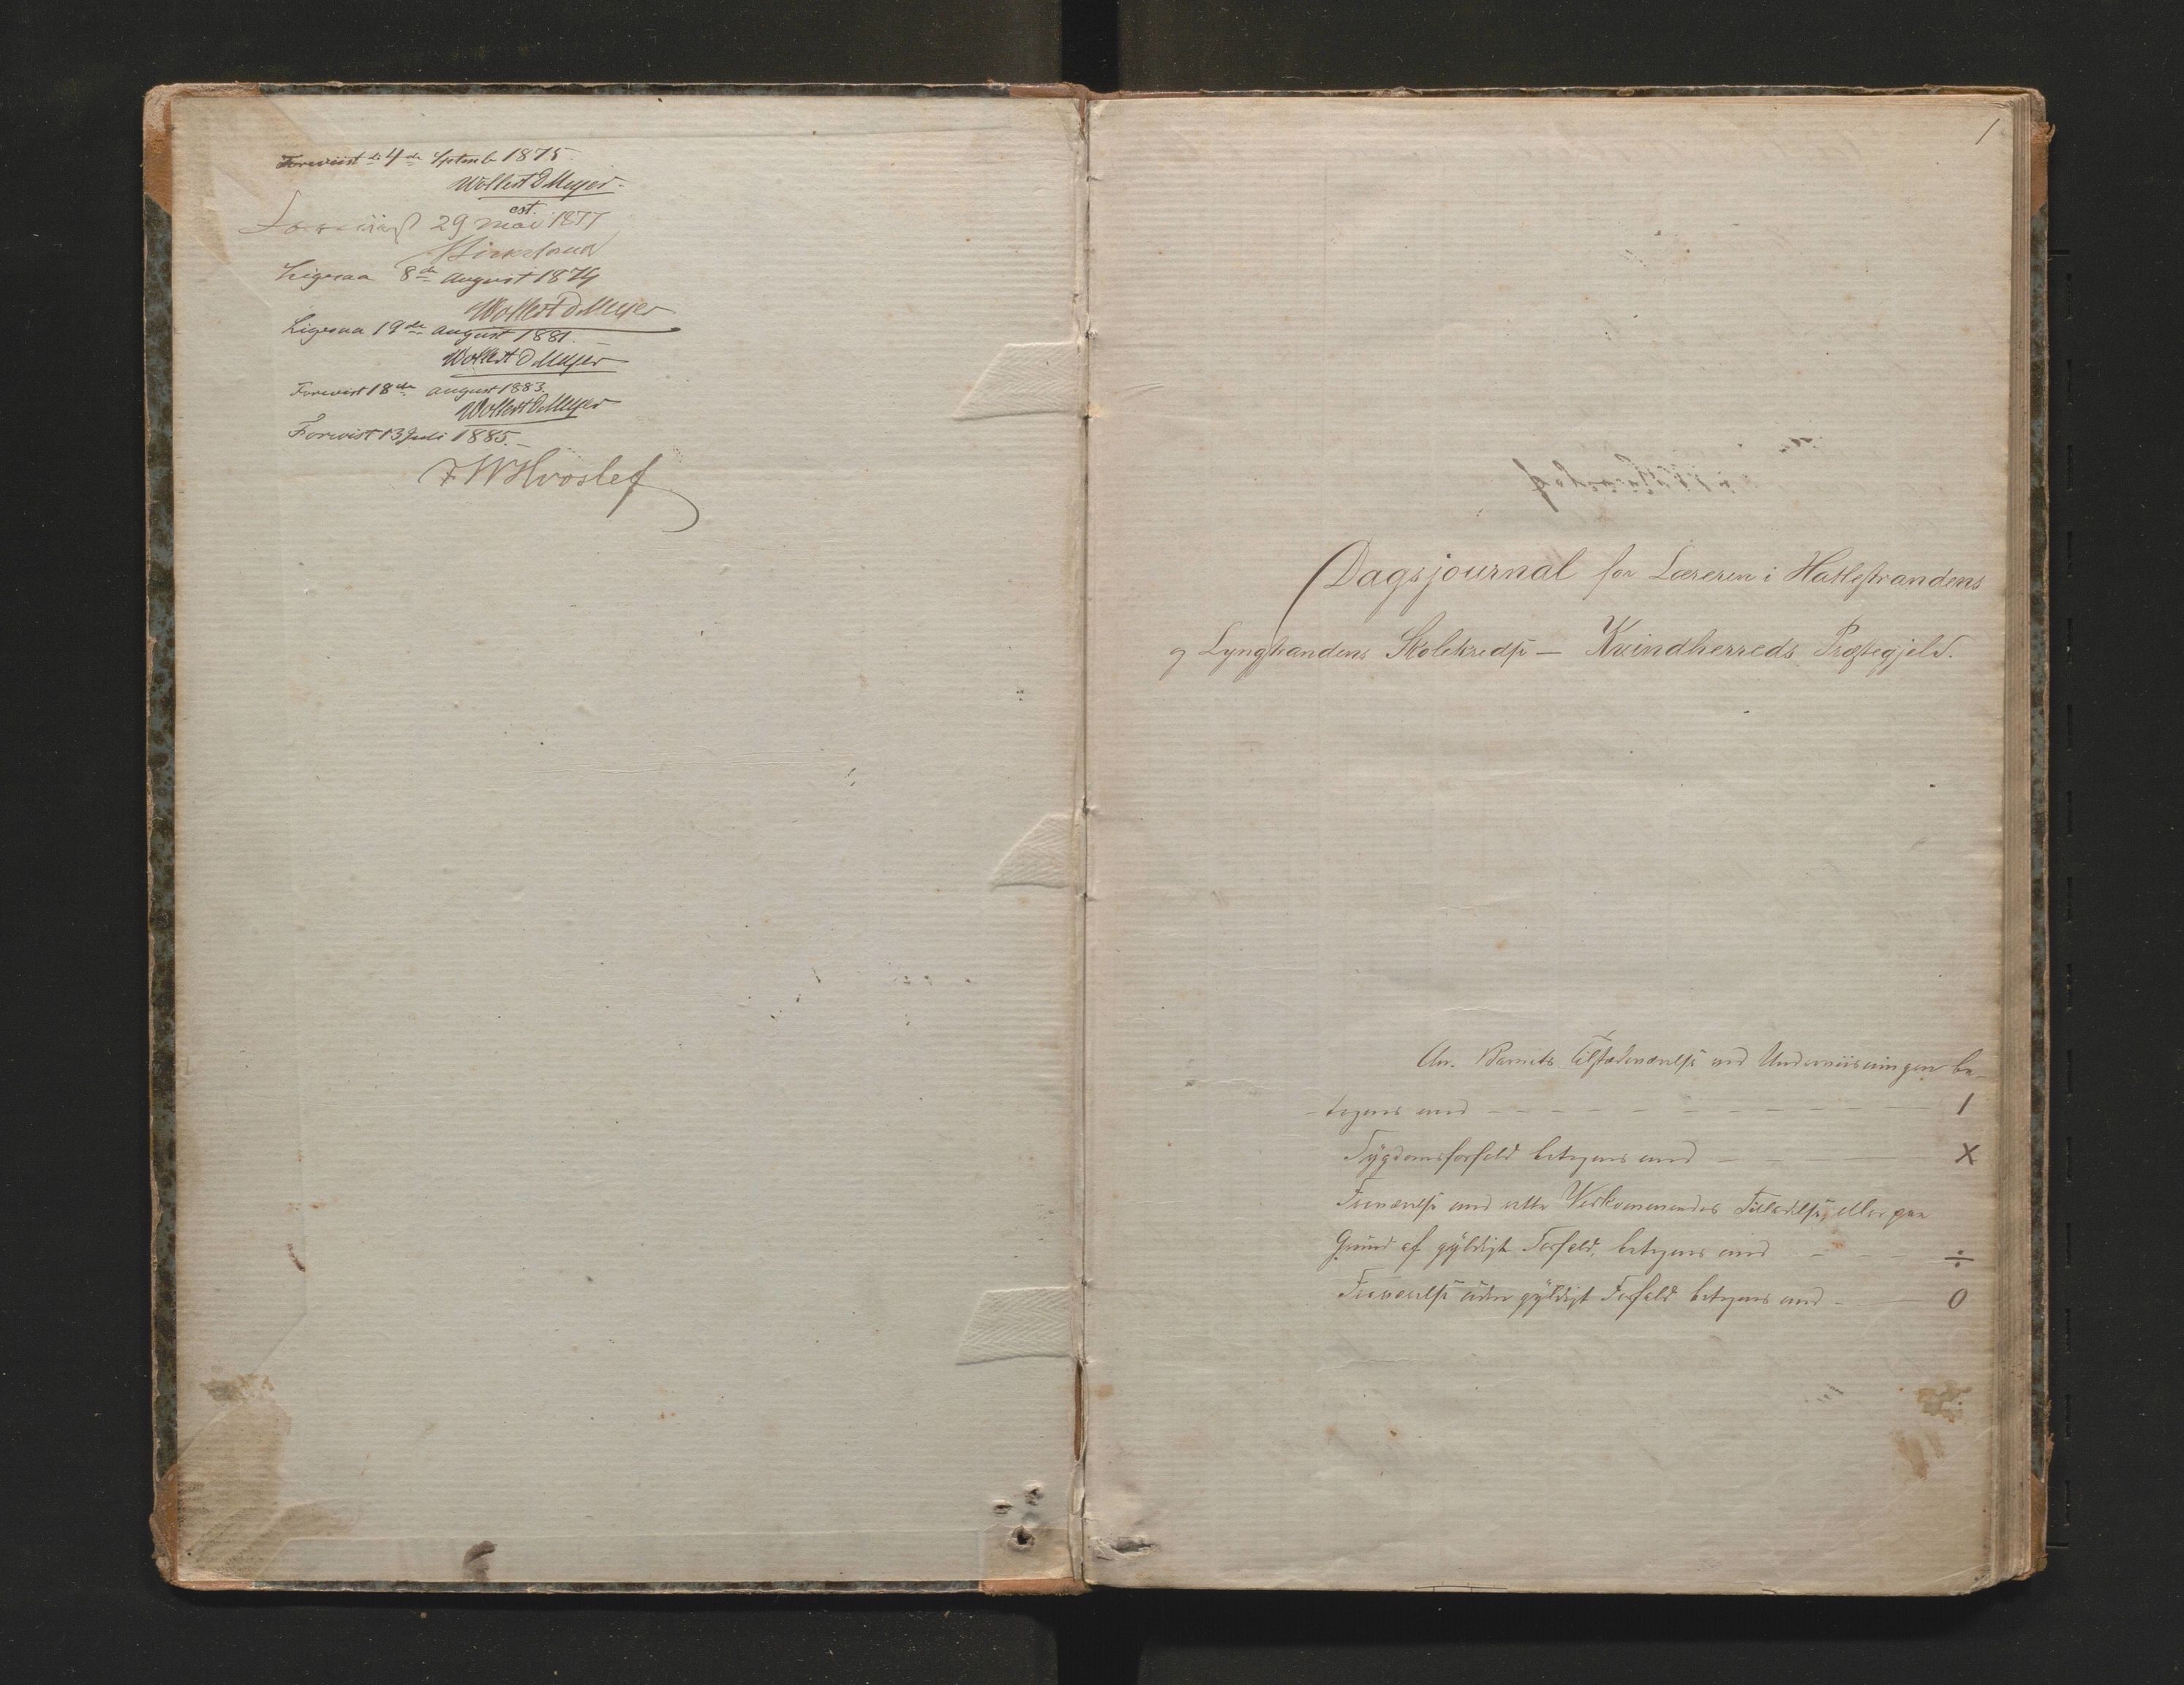 Forevist d. 4de Septemb 1875.
Wollert D Meyer.
Foreviist 29 mai 1877
est. Birkeland
Ligesaa 8de August 1879
Wollert D Meyer
Ligesaa 19de August 1881.
Wollert D Meyer
Forevist 18de August 1883.
Wollert D Meyer
Forevist 13 Juli 1885.
F W Hvoslef
1
Dagsjournal for Læreren i Hatlestrandens
og Lyngstrandens Skolekreds — Kvindherreds Præstegjeld.
An. Barnets Tilstedeværelse ved Underviisningen be-
tegnes med - - - - - - - - - - 1
Sygdomsforfald betegnes med - - X
Fraværelse med Vedkommendes Tilladelse, eller paa
Grund af gyldigt Forfald, betegnes med - - - ÷
Fraværelse uden gyldigt Forfald betegnes med - 0